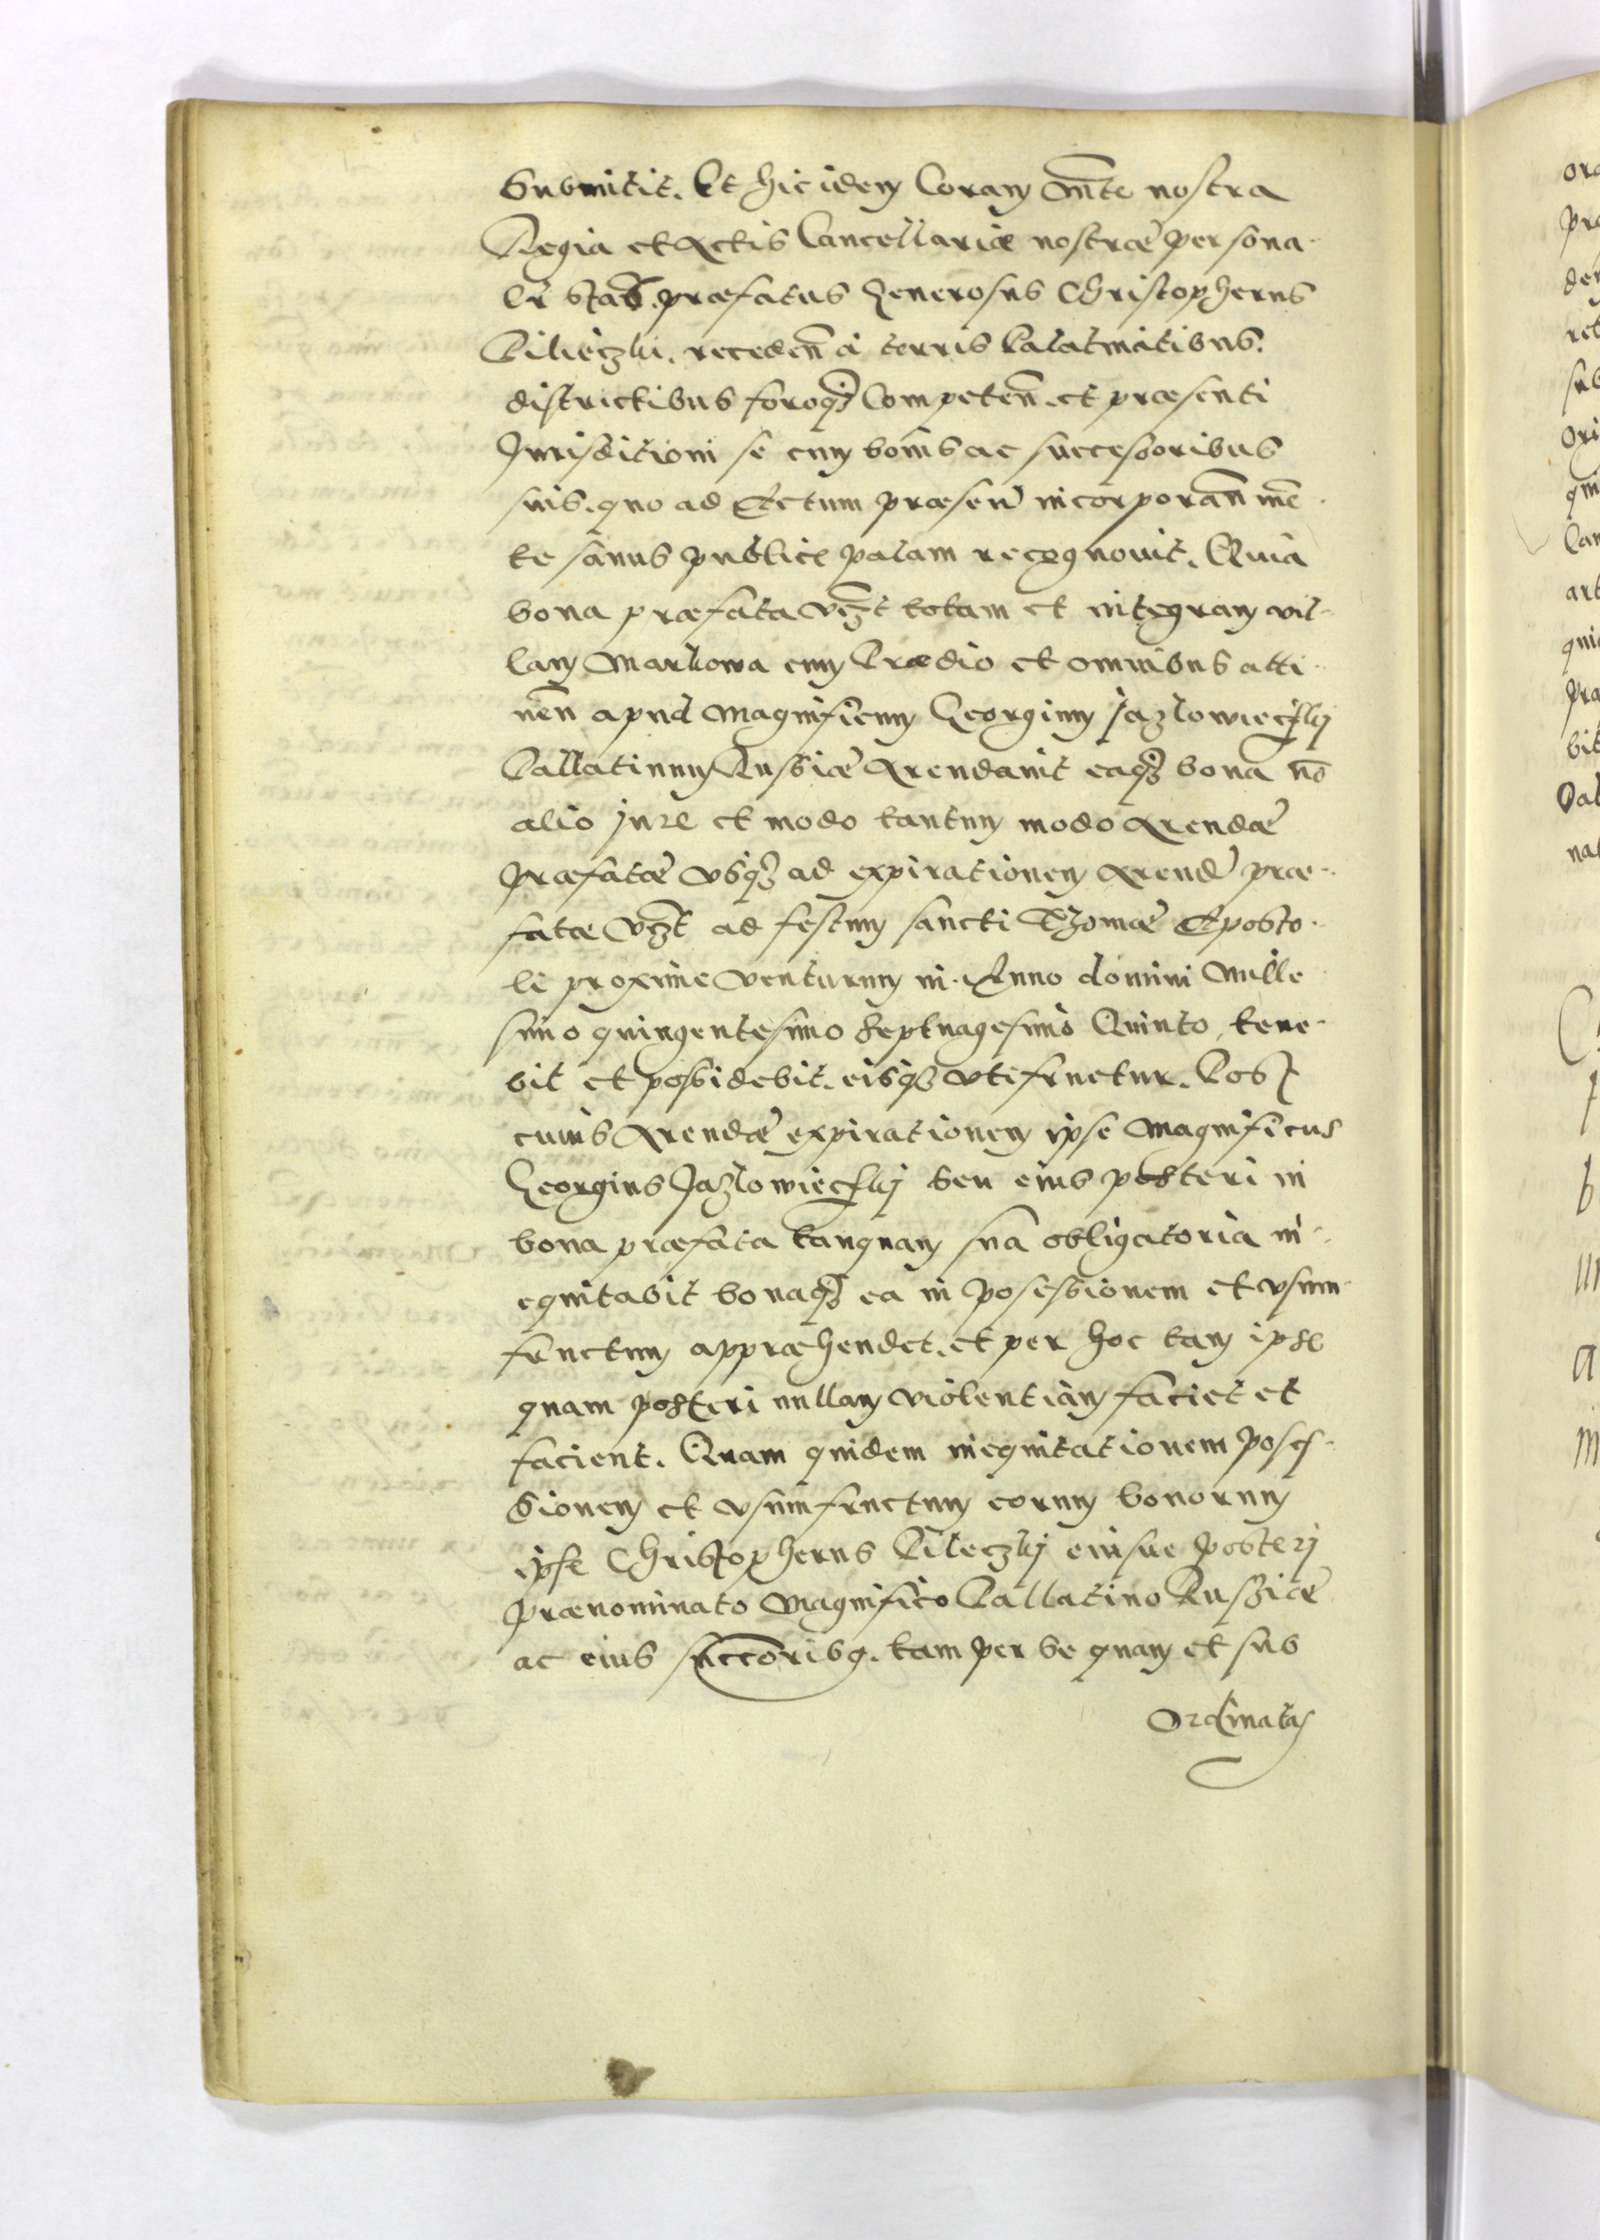 Submittit. Et hic idem Coram Mte nostra
Regia et Actis Cancellariæ nostræ persona-
lr stans. præfatus Generosus Christopherus
Pilieczki. receden a terris Palatinatibus.
districtibus foroqz Competen. et præsenti
Jurisditioni se cum bonis ac successoribus
suis. quo ad Actum præsen incorporan men
te sanus publice palam recognovit. Quia
bona præfata vzt totam et integram vil-
lam Markowa cum Prædio et omnibus atti-
nen apud Magnificum Georgium Jazlowieczkij
Pallatinum Russiæ Arendavit eaqz bona no
alio jure et modo tantum modo Arendæ
præfatæ vsqz ad expirationem Arendæ præ-
fatæ vzt ad festum sancti Thomæ Aposto-
li proxime venturum in Anno domini Mille
simo quingentesimo Septuagesimo Quinto, tene-
bit et possidebit. eisqz vtefruetur. Post
cuius Arendæ expirationem ipse Magnificus
Georgius Jazlowieczkij seu eius posteri in
bona præfata tanquam sua obligatoria in-
equitabit bonaqz ea in posessionem et vsum-
fructum appræhendet. et per hoc tam ipse
quam posteri nullam violentiam faciet et
facient. Quam quidem inequitationem poses-
sionem et vsumfructum eorum bonorum
ipse Christopherus Pileczkij eiusue posterj
prænominato Magnifico Pallatino Russiæ
ac eius succoribq. tam per se quam et sub
Ordinatas